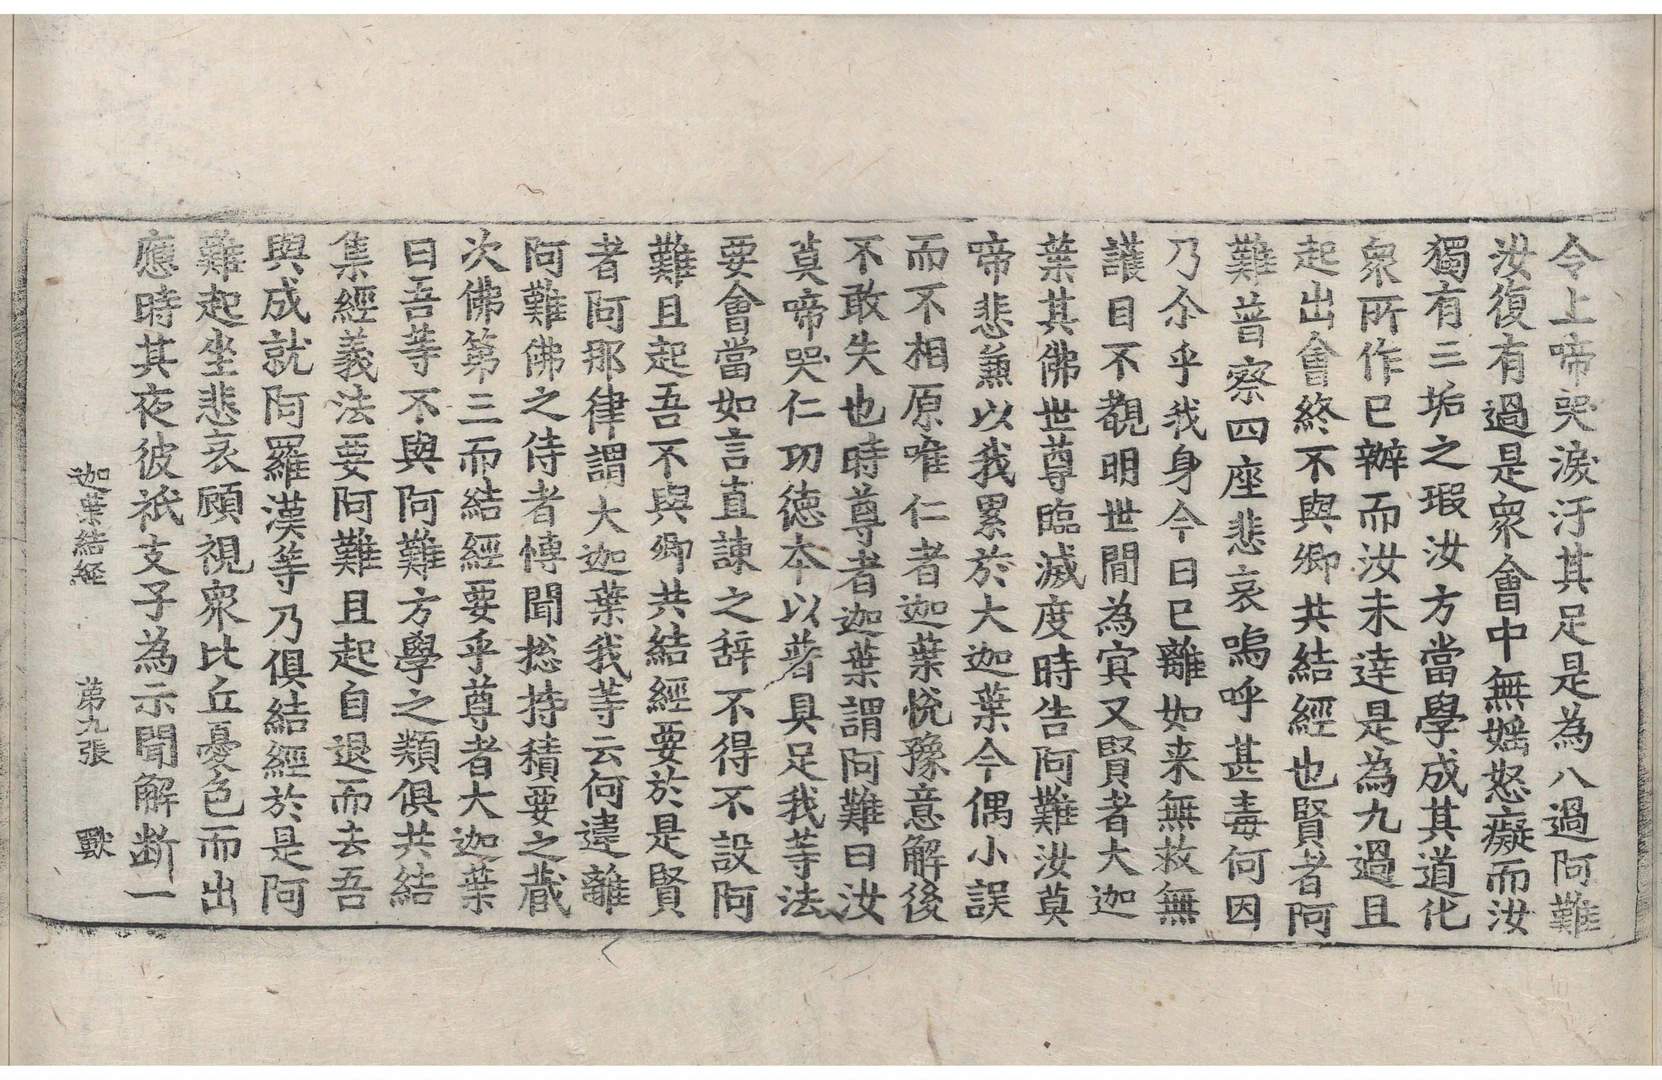 令上啼哭淚汙其足是為八過阿難
汝復有過是衆會中無婬怒癡而汝
獨有三垢之瑕汝方當學成其道化
衆所作已辦而汝未逹是為九過且
起出會終不與卿共結經也賢者阿
難普察四座悲哀嗚呼甚毒何因
乃尒乎我身今日已離如来無救無
護目不覩明世間為冥又賢者大迦
葉其佛世尊臨滅度時告阿難汝莫
啼悲兼以我累於大迦葉今偶小誤
而不相原唯仁者迦葉悅豫意解後
不敢失也時尊者迦葉謂阿難曰汝
莫啼哭仁功德本以普具足我等法
要會當如言直諫之辞不得不設阿
難且起吾不與卿共結經要於是賢
者阿那律謂大迦葉我等云何違離
阿難佛之侍者博聞捴持積要之藏
次佛第三而結經要乎尊者大迦葉
曰吾等不與阿難方學之類俱共結
集經義法要阿難且起自退而去吾
與成就阿羅漢等乃俱結經於是阿
難起坐悲哀顧視衆比丘憂色而出
應時其夜彼祇支子為示聞解断一
迦葉結經 第九張 獸